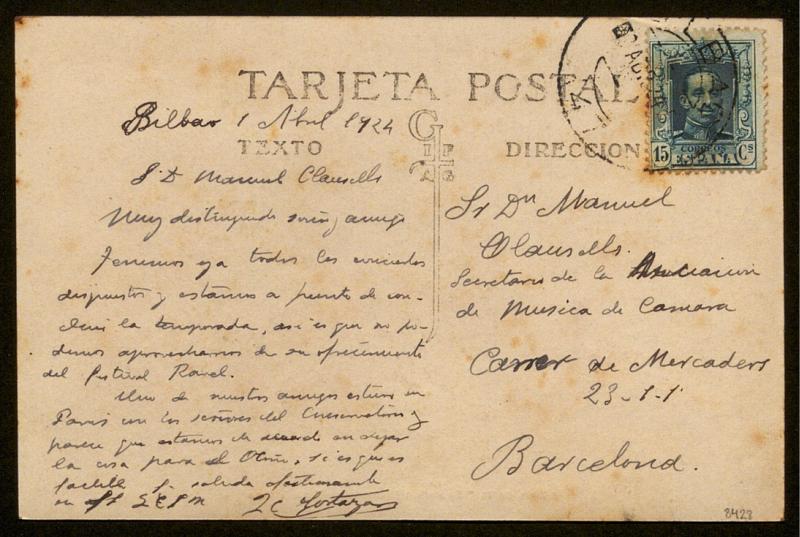 TARJETA POSTAL
Bilbao 1 Abril 1924
TEXTO
S. D Manuel Clausells
Muy distinguido señor y amigo
Tenemos ya todos los conciertos
dispuestos y estamos a punto de con-
cluir la temporada, así es que no po-
demos aprovecharnos de su ofrecimiento
del festival Ravel.
Uno de nuestros amigos estuvo en
Paris con los señores del Conservatorio y
parece que estamos de acuerdo en dejar
la cosa para el Otoño, si es que es
factible. Le saluda afectuosamente
su
DIRECCION
Sr Dn Manuel
Clausells.
Secretario de la Asociacion
de Musica de Camara
Carrer de Mercaders
23-1-1
Barcelona.
15 CORREOS Cs
ESPAÑA
8428